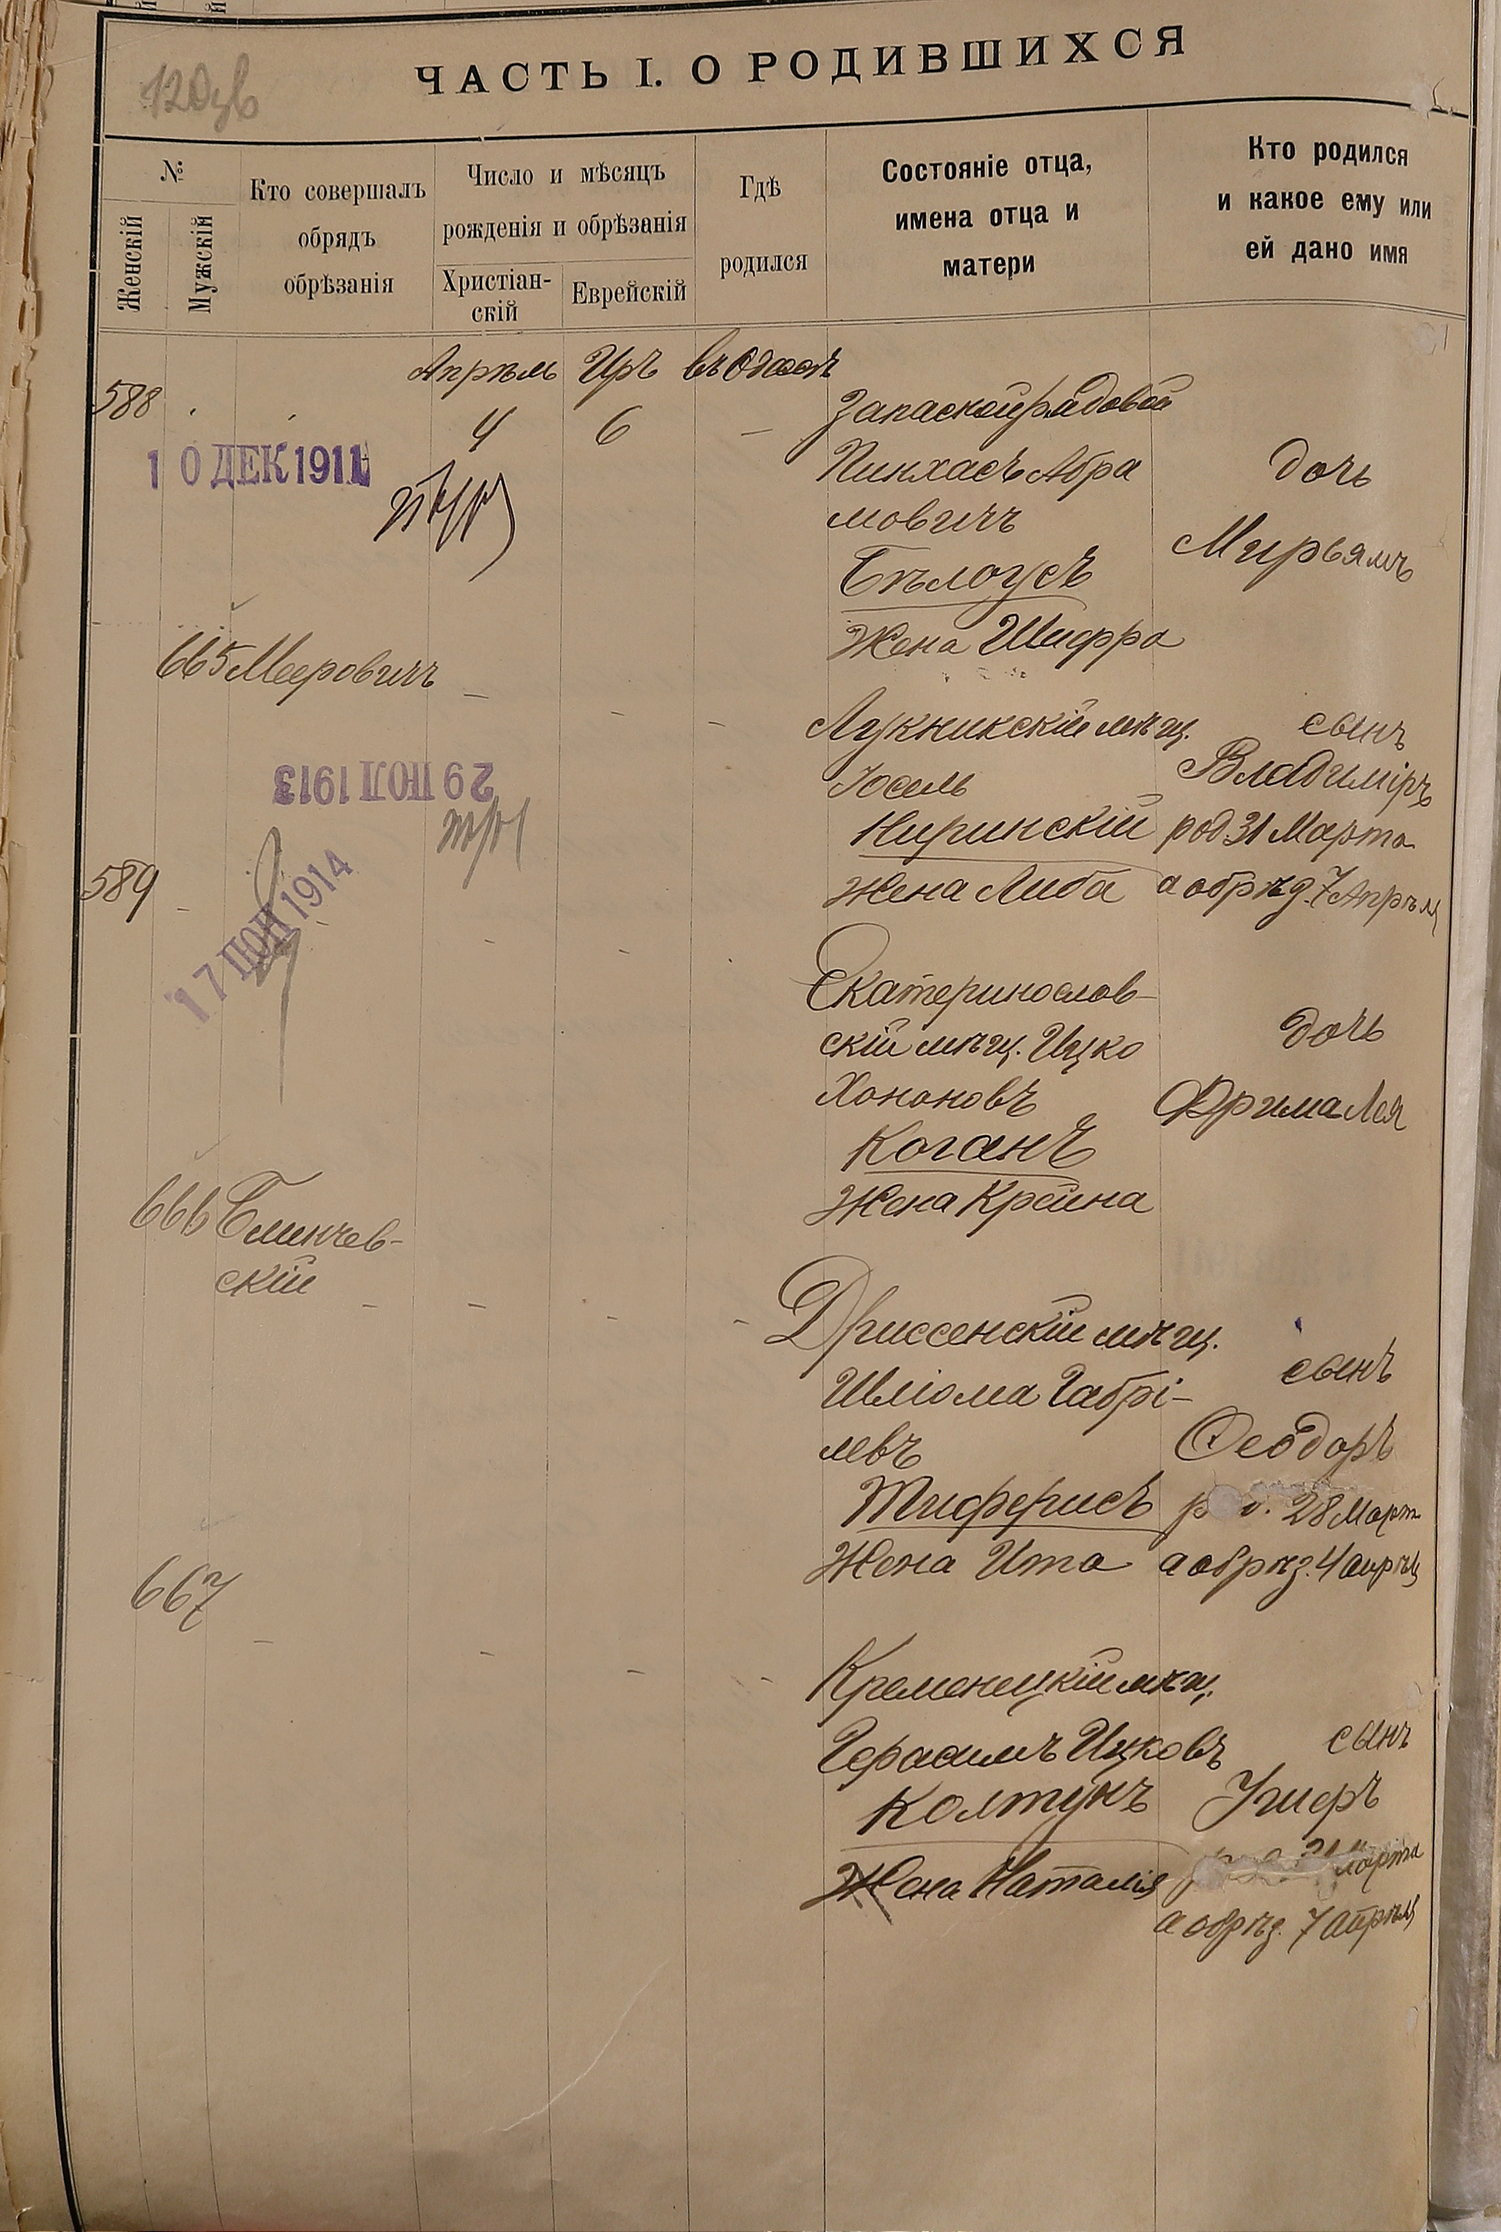 ЧАСТЬ I. О РОДИВШИХСЯ
№
Женскій
Мужскій
Кто совершалъ
обрядъ
обрѣзанія
Число и мѣсяцъ
рожденія и обрѣзанія
Христіан-
скій
Еврейскій
Гдѣ
родился
Состояніе отца,
имена отца и
матери
Кто родился
и какое ему или
ей дано имя
Апрѣль Иръ въ Одессѣ
588
4 6
Запаской рядовой
10 ДЕК 1911
Пинхасъ Абра
мовичъ
Бѣлоусъ
Жена Шифра
дочь
Мирьямъ
665 Мееровичъ
Лукникскій мѣщ.
Іосель
Ниринскій
Жена Либа
сынъ
Владиміръ
род. 31 Марта
а обрѣз. 7 Апрѣля
29 ІЮЛ 1913
589
17 ІЮН 1914
Екатеринослов-
скій мѣщ. Ицко
Хононовъ
Коганъ
Жена Крейна
дочь
Фрима Лея
666 Блинчев-
скій
Дриссенскій мѣщ.
Шліома Габрі-
левъ
Тиферисъ
Жена Ита
сынъ
Ѳеодоръ
28 Март
а обрѣз. 4 апрѣл
667
Кременецкій мѣщ.
Герасимъ Ицковъ
Колтунъ
Жена Наталія
сынъ
марта
а обрѣз. 7 Апрѣля